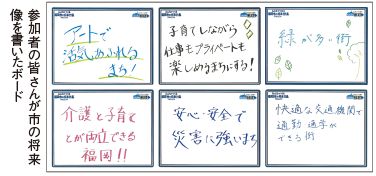 参加者の皆さんが市の将来
像を書いたボード
アートで
活気あふれる
まち！
子育てしながら
仕事もプライベートも
楽しめるまちにする！
緑が多い街
介護と子育て
とが両立できる
福岡！！
安心・安全で
災害に強いまち
快適な交通機関で
通勤 通学が
できる街